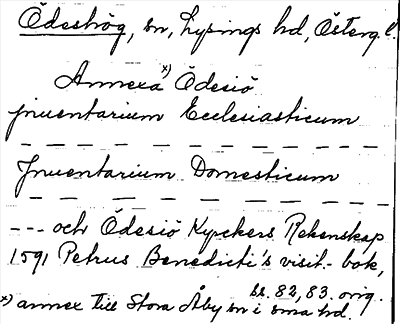 Ödeshög, sn, Lysings hd, Österg. l.
Annexa x) Ödesiö
jnuentarium Ecclesiasticum
– – – – – – – – – – – –
Jnuentarium Domesticum
– – – – – – – – – – – –
- - - och Ödesiö Kyrckers Rekenskap
1591 Petrus Benedicti's visit.- bok,
ss. 82, 83. orig.
x) annex till Stora Åby sn i sma hd.